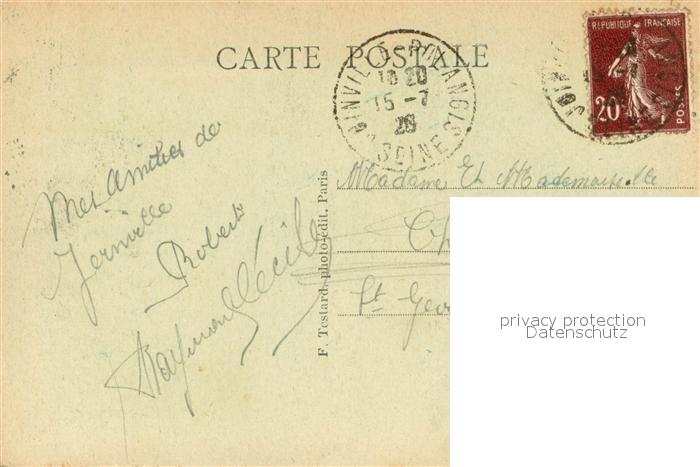 CARTE POSTALE
REPUBLIQUE FRANÇAISE
20c
POSTES
JOINVILLE-LE-PONT
18 20
15-7
26
SEINE
Mes Amitiés de
Joinville
Robert
Raymond Cécile
F. Testard, photo-édit. Paris
Madame Et Mademoiselle
St
privacy protection
Datenschutz